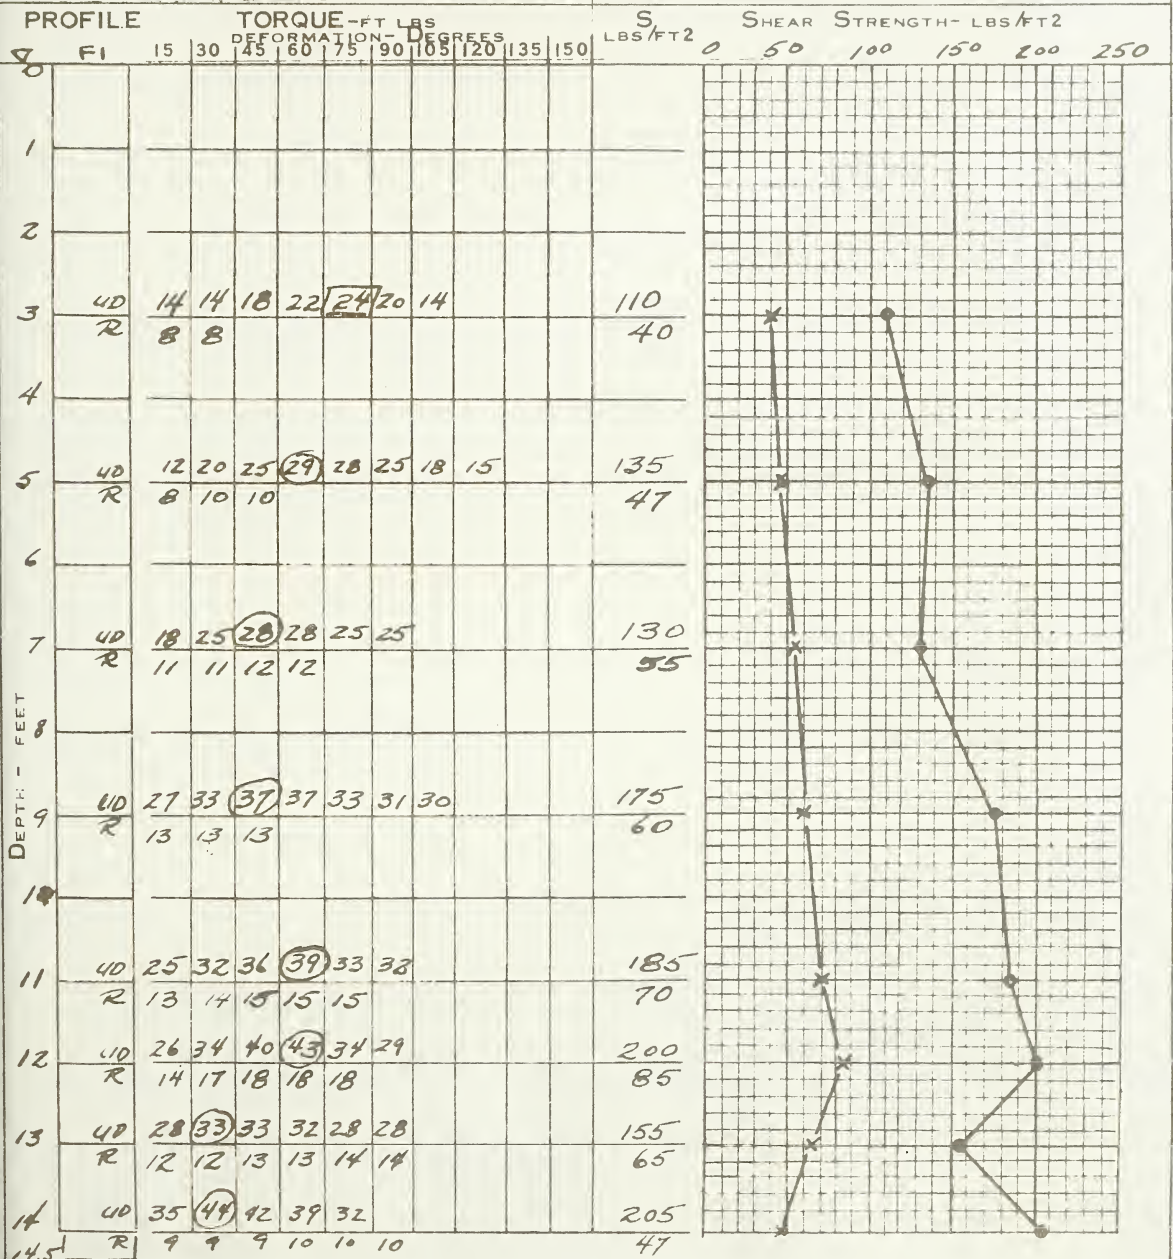 PROFILE TORQUE-FT LBS S, SHEAR STRENGTH- LBS/FT2
DEFORMATION- DEGREES LBS/FT2
F1 15 30 45 60 75 90 105 120 135 150 0 50 100 150 200 250
0
1
2
UD 14 14 18 22 24 20 14 110
3
R 8 8 40
4
UD 12 20 25 29 28 25 18 15 135
5
R 8 10 10 47
6
UD 18 25 28 28 25 25 130
7
R 11 11 12 12 55
DEPTH - FEET
8
UD 27 33 37 37 33 31 30 175
9
R 13 13 13 60
10
UD 25 32 36 39 33 32 185
11
R 13 14 15 15 15 70
12 UD 26 34 40 43 34 29 200
R 14 17 18 18 18 85
13 UD 28 33 33 32 28 28 155
R 12 12 13 13 14 14 65
14 UD 35 44 42 39 32 205
14.5 R 9 9 9 10 10 10 47